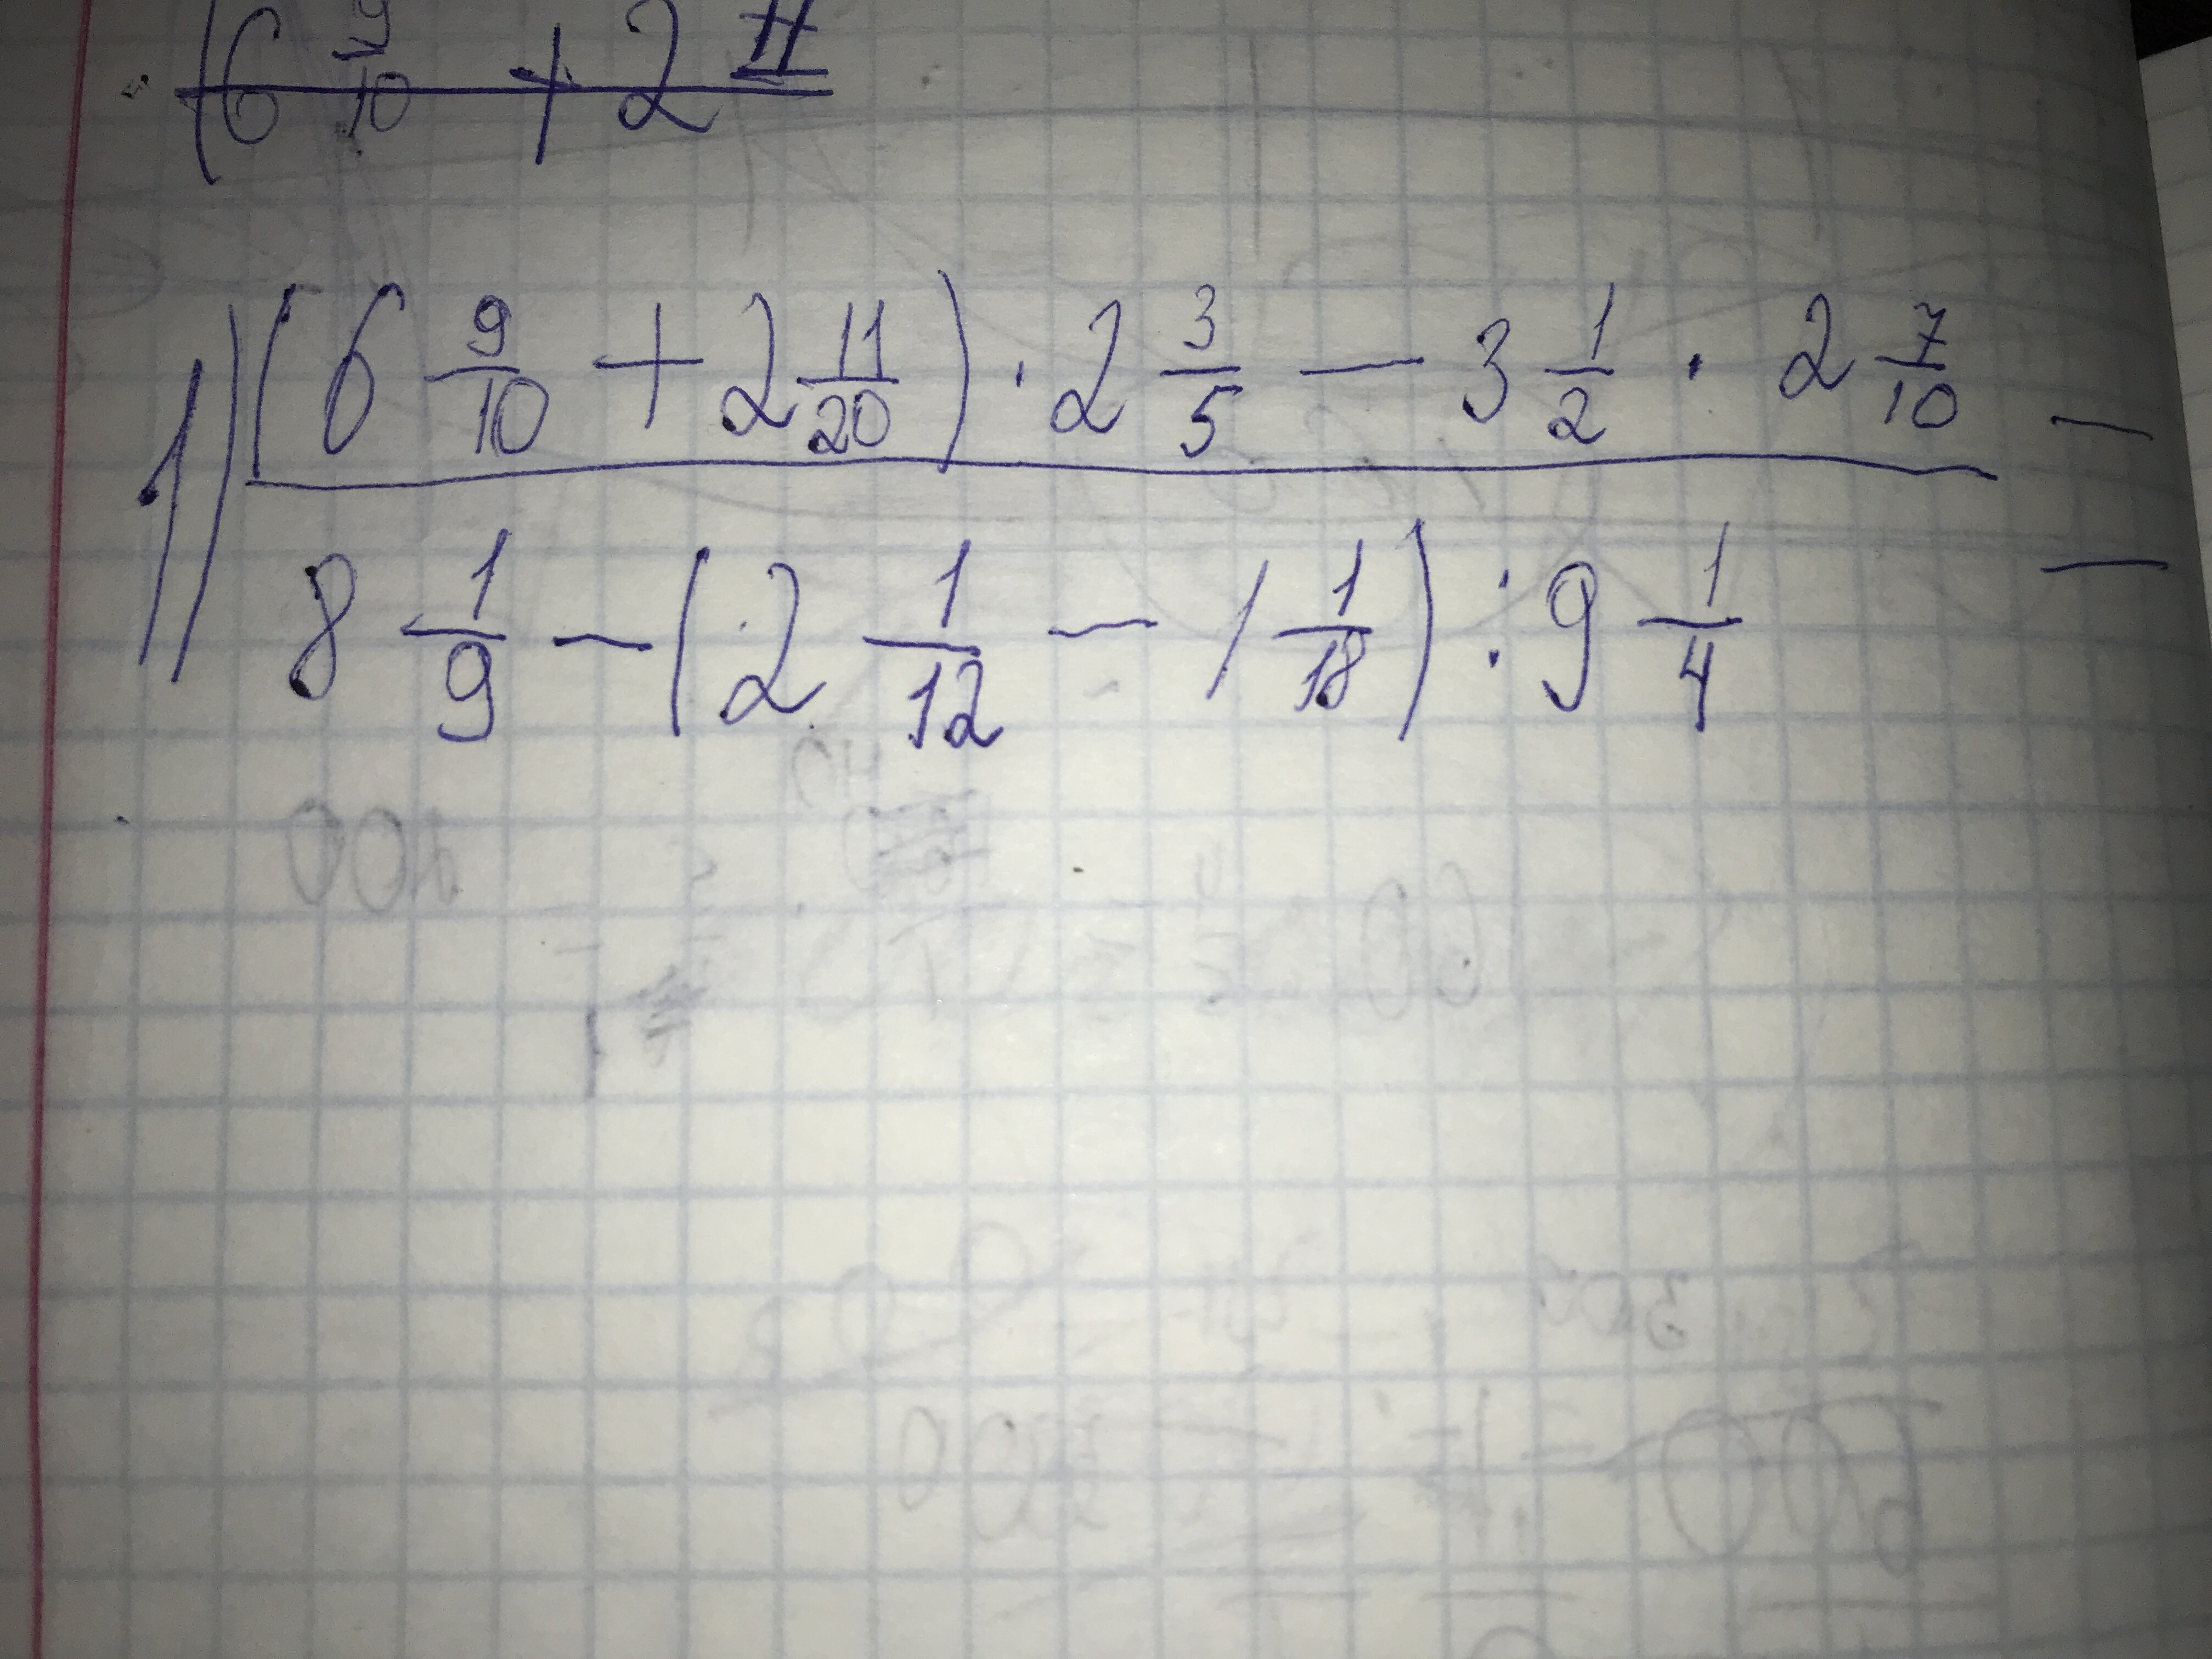 (6 9/10 + 2 11
1) ((6 9/10 + 2 11/20) · 2 3/5 − 3 1/2 · 2 7/10) / (8 1/9 − (2 1/12 − 1 1/18) : 9 1/4) =